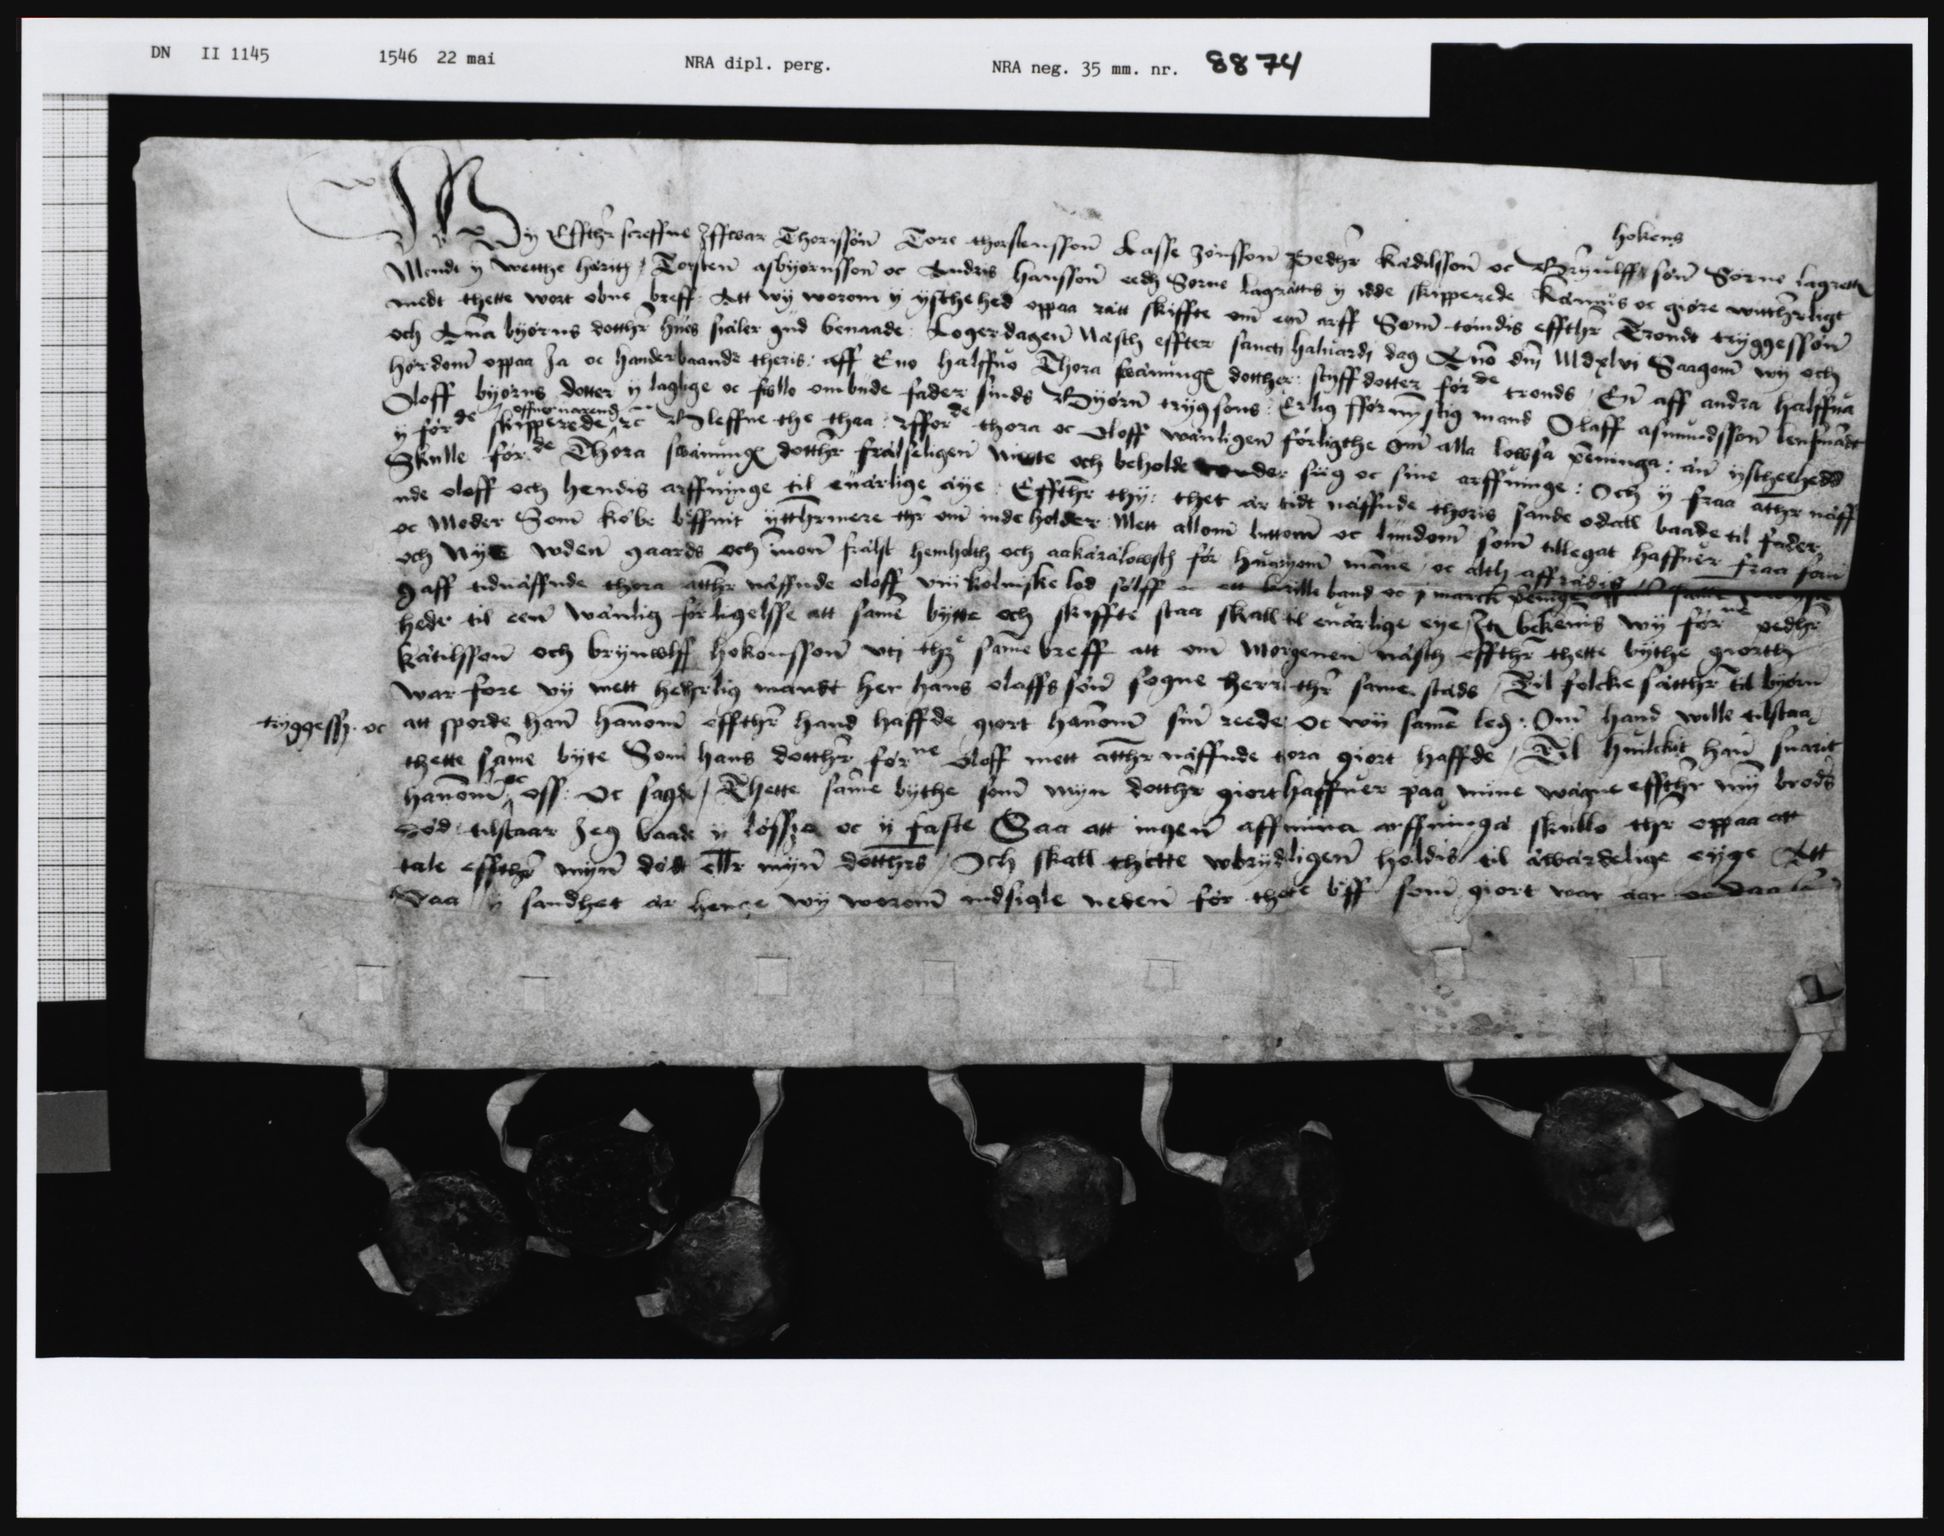 DN II 1145 1546 22 mai NRA dipl. perg. NRA neg. 35 mm. nr. 8874
hokens
Wy Effthr screffne Iffwar Thorissøn Tore thorstensson Lasse Jonsson Pedhr kædilsson oc Brÿnulff søn Sorne lagretth
Mendt y wetthe hærith / Torsten asbyørnsson oc Andris hansson edh Sorne lagrættis y idde skipperede kænnis oc giøre witthrligt
medt thette wort obne breff Att wy worom y ÿstehed oppaa rætt skiffte om em arff Som tömdis effthr Trondt tryggessøn
och Ana byørns dotthr hues siæler gud benaade Logerdagen Næsth effter sancti haluardi dag Ano dm Mdxlvi Saagom wy och
hørdom oppaa Ja oc handerbaande theris aff Eno halffuo Thora swænungx dotther styffdotter forde tronds / En aff andra halffua
Oloff byørns dotter y laglige oc fullo ombude fader sinds Byørn trygsons Erlig ffornystig mand Olaff asmundsson lensmadt
y forde skipperede offuerwarend etc Bleffue the thea Afforde thora oc Oloff wænligen forligthe om alla lowsa peninga än ÿsteehedd
Skulle forde Thora swænungx dotthr frælseligen niute och beholde under siig oc sine arffuinge Och y fraa atthr näff
nde oloff och hendis arffuinge til euärlige äÿe Effthr thy thet är tidt näffnde thoris sande odall baade til fader
oc Moder Som köbe bffuit ÿtthrmere thr om inde holder Mett allom luttom oc lundom som tillegat haffuer fraa forn
och Nÿe uden gaards och inon frælst hemholth och aakæralowsth før huaryom mane oc alth affrædis
gaff tidnäffnde thora atthr näffnde oloff viij kolniske lod sølff oc ett kirille band oc j marck peninge
hede til een wænlig forligelsse att same bytte och skyffte staa skall til euärlige eye / Ith bekenis wy forne pedhr
kätilsson och brynwlff hokonsson vti thz same breff att om Morgenen nästh effthr thette bythe giorth
war fore wy mett hederlig mandt her hans olaffs søn sogne herr thr same stads / Til folcke sätthr til byørn
tryggessz oc att sporde han hanom effthr hand haffde giort hanom sin reede oc wy samen leg Om hand wille tilstaa
thette same byte Som hans dotthr forne oloff mett atthr näffnde tora giort haffde / Til huilckit han suarit
hanom oc oss Oc sagde / Thette same bythe som myn dotthr giort haffuer paa mine wägne effthr my broders
död tilstaar Jeg baade y løssze oc y faste Saa att ingen aff mina arffuinga skulle thr oppaa att
tale effthr myn død ellr myn dotthrs / Och skall thette ubrydligen holdis til äwärdelige eyge Att
saa y sandhet är henge wy worom indsigle neden for thete bff som giort war aar oc daa